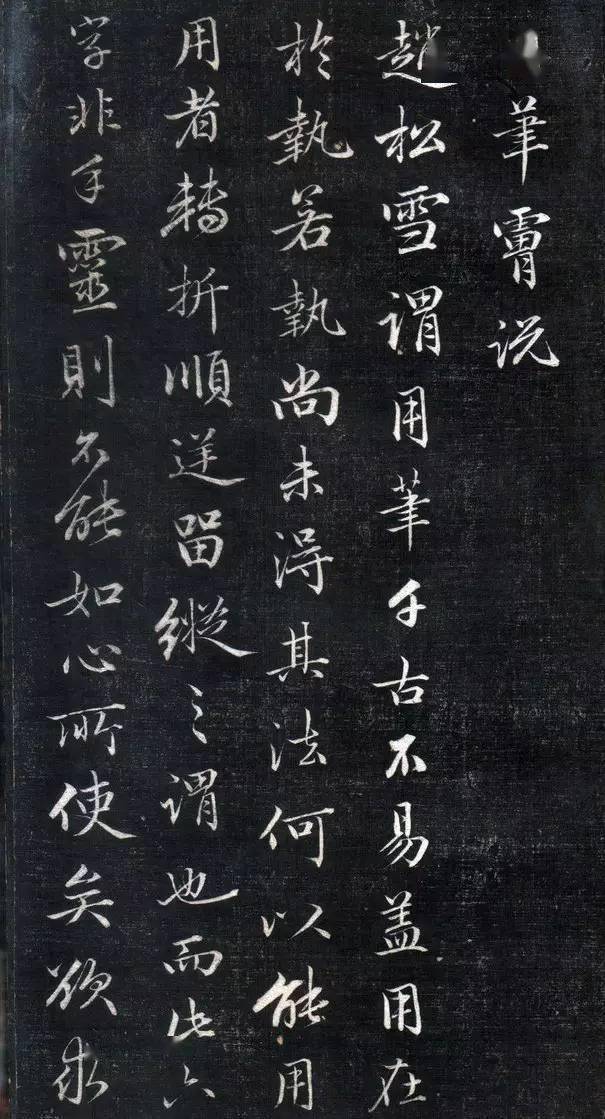 筆說
趙松雪謂用筆千古不易盖用在
於執若執尚未得其法何以能用
用者轉折順逆留縱之謂也而此六
字非手靈則不能如心所使矣欲求